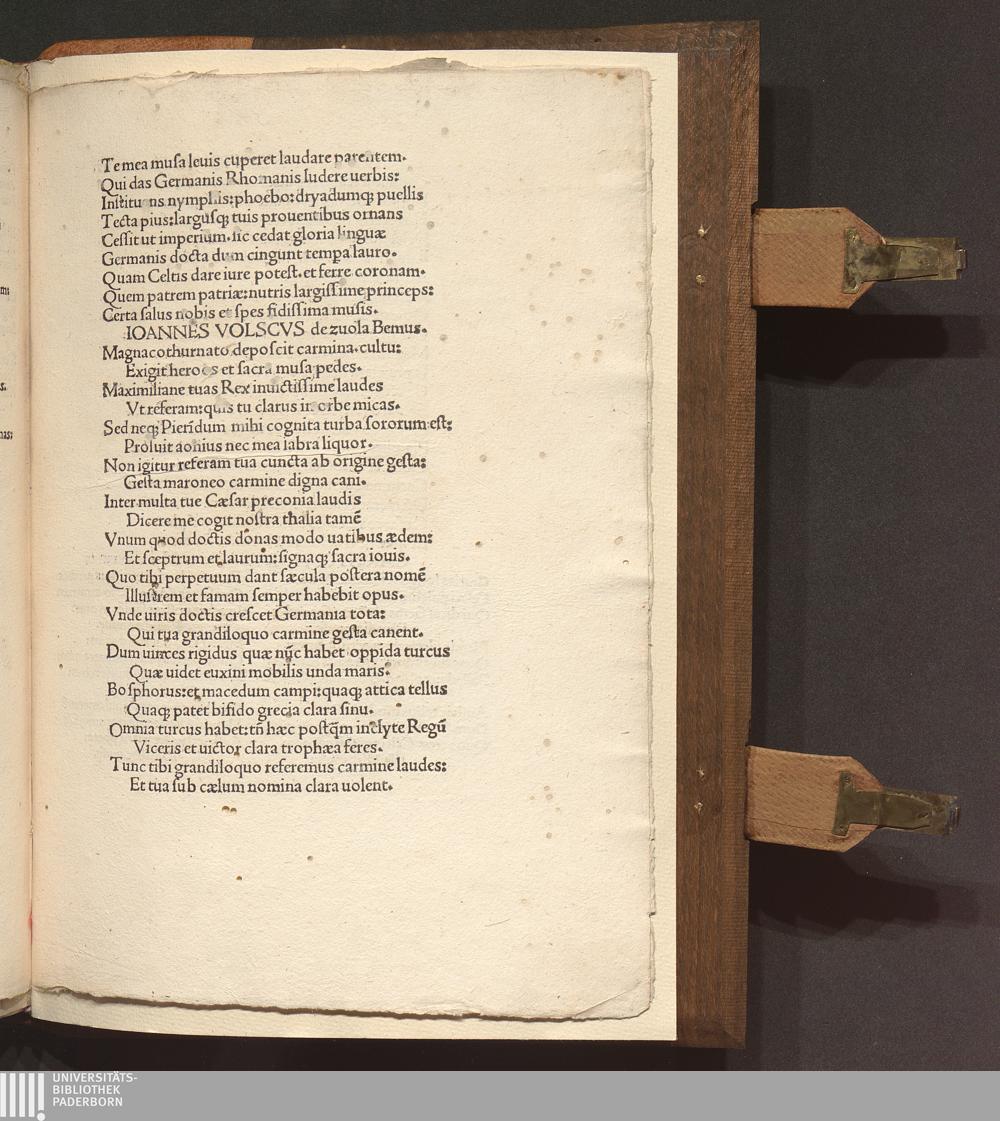 Te mea muſa leuis cuperet laudare parentem.
Qui das Germanis Rhomanis ludere uerbis:
Inſtituens nymphis: phoebo: dryadumq; puellis
Tecta pius: larguſq; tuis prouentibus ornans
Ceſſit ut imperium. ſic cedat gloria linguæ
Germanis docta dum cingunt tempa lauro.
Quam Celtis dare iure poteſt. et ferre coronam.
Quem patrem patriæ: nutris largiſſime princeps:
Certa ſalus nobis et ſpes fidiſſima muſis.
IOANNES VOLSCVS de zuola Bemus.
Magna cothurnato depoſcit carmina. cultu:
Exigit heroos et ſacra muſa pedes.
Maximiliane tuas Rex inuictiſſime laudes
Vt referam: quis tu clarus in orbe micas.
Sed neq; Pierīdum mihi cognita turba ſororum eſt:
Proluit aonius nec mea labra liquor.
Non igitur referam tua cuncta ab origine geſta:
Geſta maroneo carmine digna cani.
Inter multa tue Cæſar preconia laudis
Dicere me cogit noſtra thalia tamē
Vnum quod doctis donas modo uatibus ædem:
Et ſceptrum et laurum: ſignaq; ſacra iouis.
Quo tibi perpetuum dant ſæcula poſtera nomē
Illuſtrem et famam ſemper habebit opus.
Vnde uiris doctis creſcet Germania tota:
Qui tua grandiloquo carmine geſta canent.
Dum uinces rigidus quæ nūc habet oppida turcus
Quæ uidet euxini mobilis unda maris.
Boſphorus: et macedum campi: quaq; attica tellus
Quaq; patet bifido grecia clara ſinu.
Omnia turcus habet: tñ hæc poſtq̃m inclyte Regū
Viceris et uictor clara trophæa feres.
Tunc tibi grandiloquo referemus carmine laudes:
Et tua ſub cælum nomina clara uolent.
UNIVERSITÄTS-
BIBLIOTHEK
PADERBORN